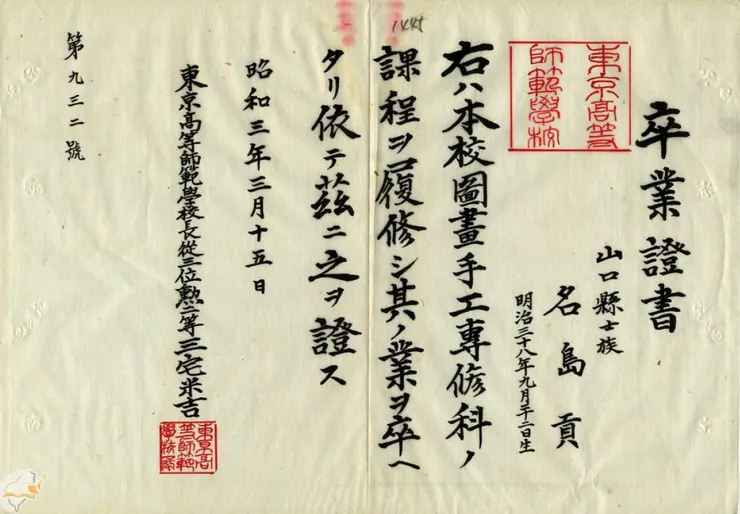 卒業證書
東京高等
師範學校
山口縣士族
名島貢
明治三十八年九月二十二日生
右ハ本校圖畫手工專修科ノ
1445
課程ヲ履修シ其ノ業ヲ卒ヘ
タリ依テ茲ニ之ヲ證ス
昭和三年三月十五日
東京高等師範學校長從三位勲二等三宅米吉
東京高
等師範
第九三二號